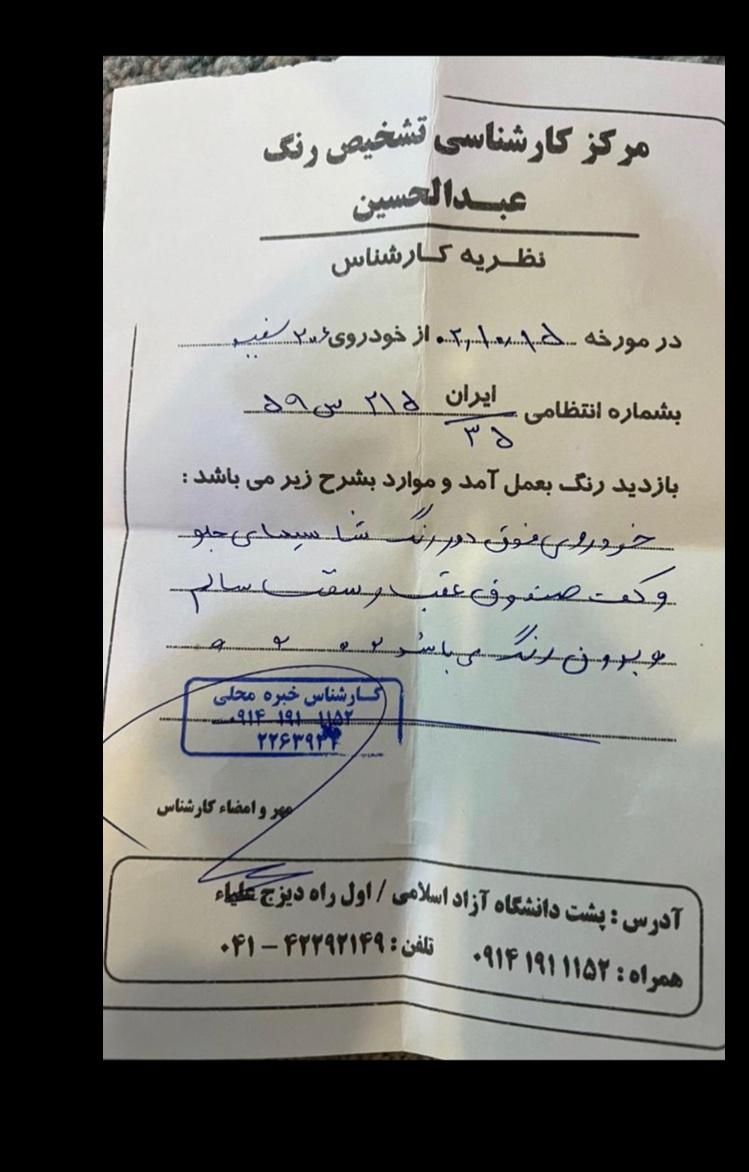 مرکز کارشناسی تشخیص رنگ
عبدالحسین
نظریه کارشناس
در مورخه ۰۲,۱۰,۱۵ از خودروی ۲۰۶ سفید
بشماره انتظامی ایران ۳۵ ۲۱۵ س ۵۹
بازدید رنگ بعمل آمد و موارد بشرح زیر می باشد :
خودروی فوق دور رنگ جلو
و کف صندوق عقب و سقف سالم
و بدون رنگ می باشد
کارشناس خبره محلی
۰۹۱۴ ۱۹۱ ۱۱۵۲
مهر و امضاء کارشناس
آدرس : پشت دانشگاه آزاد اسلامی / اول راه دیزج علیاء
همراه : ۰۹۱۴ ۱۹۱ ۱۱۵۲ تلفن : ۴۲۲۹۲۱۴۹ – ۰۴۱